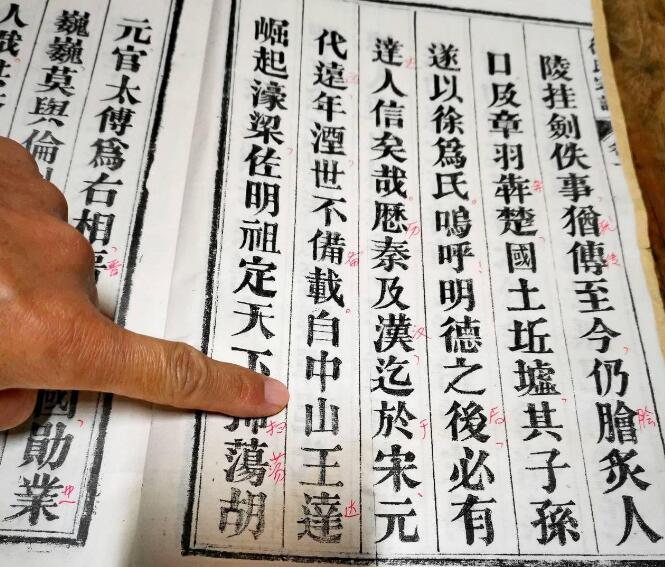 陵挂劍佚事猶傳至今仍膾炙人
口及章羽犇楚國土坵墟其子孫
遂以徐爲氏嗚呼明德之後必有
達人信矣哉歷秦及漢迄於宋元
代遠年湮世不備載自中山王達
崛起濠梁佐明祖定天下掃蕩胡
元官太傅爲右相
巍巍莫與倫國勛業
人哉